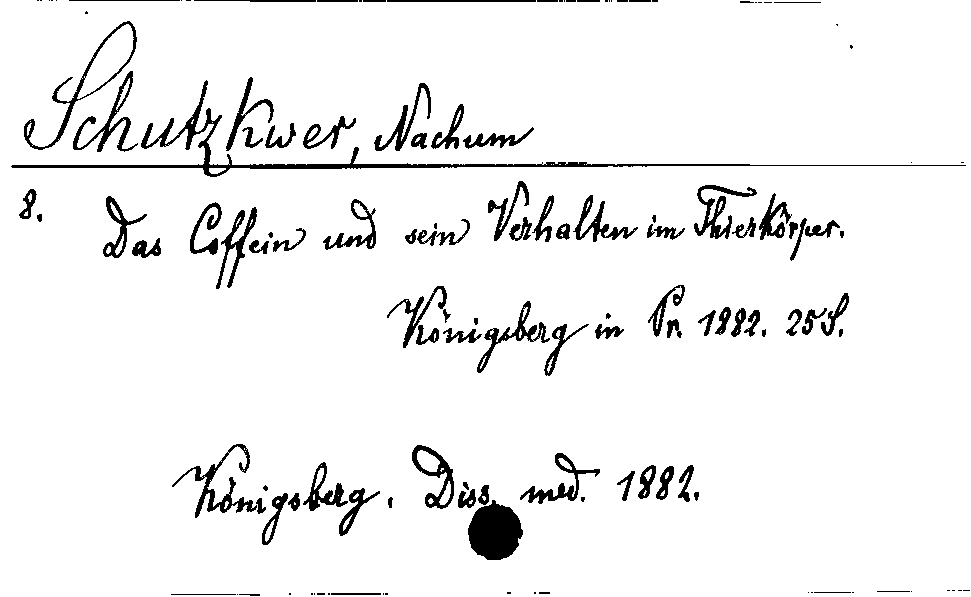 Schutzkwer, Nachum
8. Das Coffein und sein Verhalten im Thierkörper.
Königsberg in Pr. 1882. 25 S.
Königsberg, Diss. med. 1882.